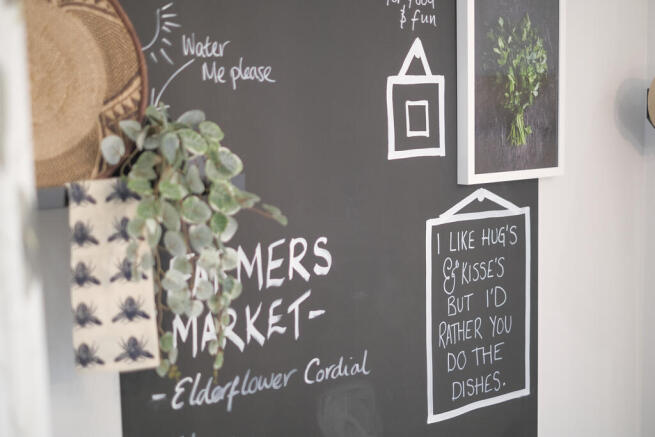 for food
& fun
Water
Me please
FARMERS
MARKET-
- Elderflower Cordial
I LIKE HUG'S
& KISSE'S
BUT I'D
RATHER YOU
DO THE
DISHES.